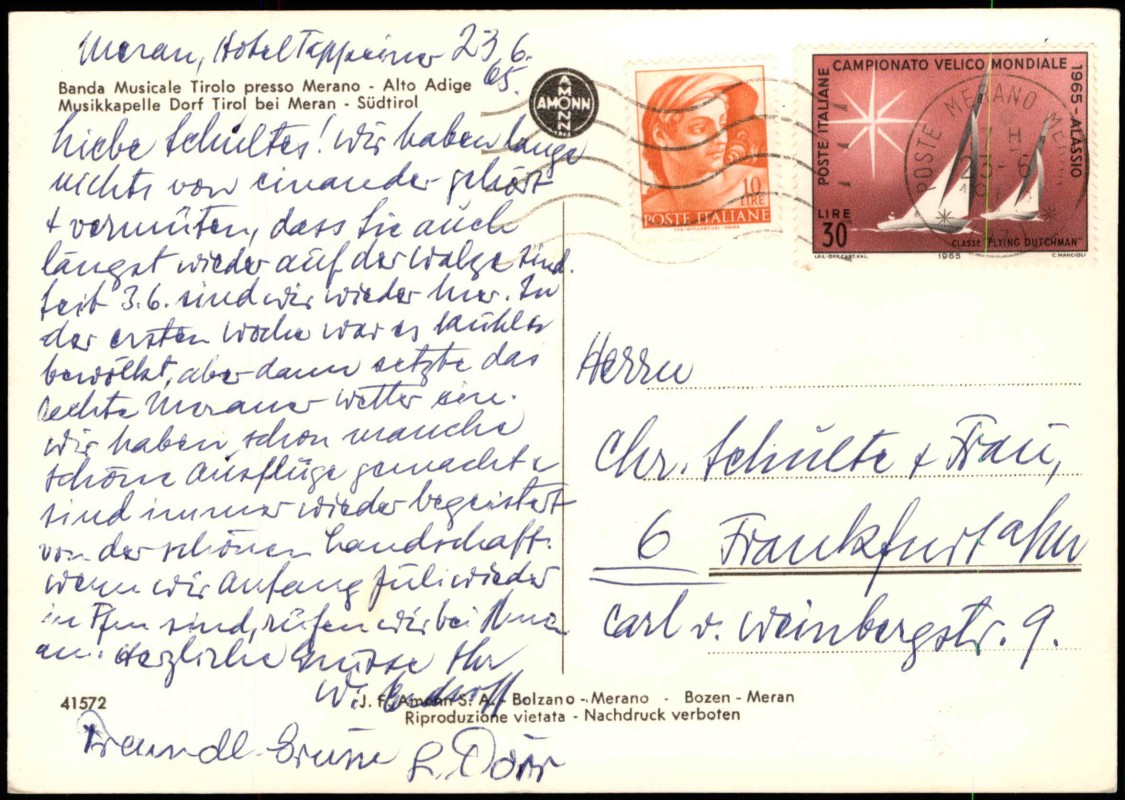 Meran, Hotel Tappeiner 23.6.
65.
Banda Musicale Tirolo presso Merano - Alto Adige
Musikkapelle Dorf Tirol bei Meran - Südtirol
AMONN
AMONN
Liebe Schultes! Wir haben lange
nichts von einander gehört
+ vermuten, dass Sie auch
längst wieder auf der Walze sind.
Seit 3.6. sind wir wieder hier. In
der ersten Woche war es kühler
bewölkt, aber dann setzte das
echte Meraner Wetter ein.
Wir haben schon manche
schöne Ausflüge gemacht +
sind immer wieder begeistert
von der schönen Landschaft.
Wenn wir Anfang Juli wieder
in Ffm sind, rufen wir bei Ihnen
an. Herzliche Grüsse Ihr
W.
41572
J. F. Amonn S. A. - Bolzano - Merano - Bozen - Meran
Riproduzione vietata - Nachdruck verboten
Freundl. Grüsse L. Dörr
10
LIRE
POSTE ITALIANE
CAMPIONATO VELICO MONDIALE
1965 - ALASSIO
POSTE ITALIANE
LIRE
30
CLASSE "FLYING DUTCHMAN"
I.P.S.-OFF.CART.VAL. 1965 C. MANCIOLI
POSTE MERANO
23-6
Herrn
Chr. Schulte + Frau,
6 Frankfurt a/m
Carl v. Weinbergstr. 9.